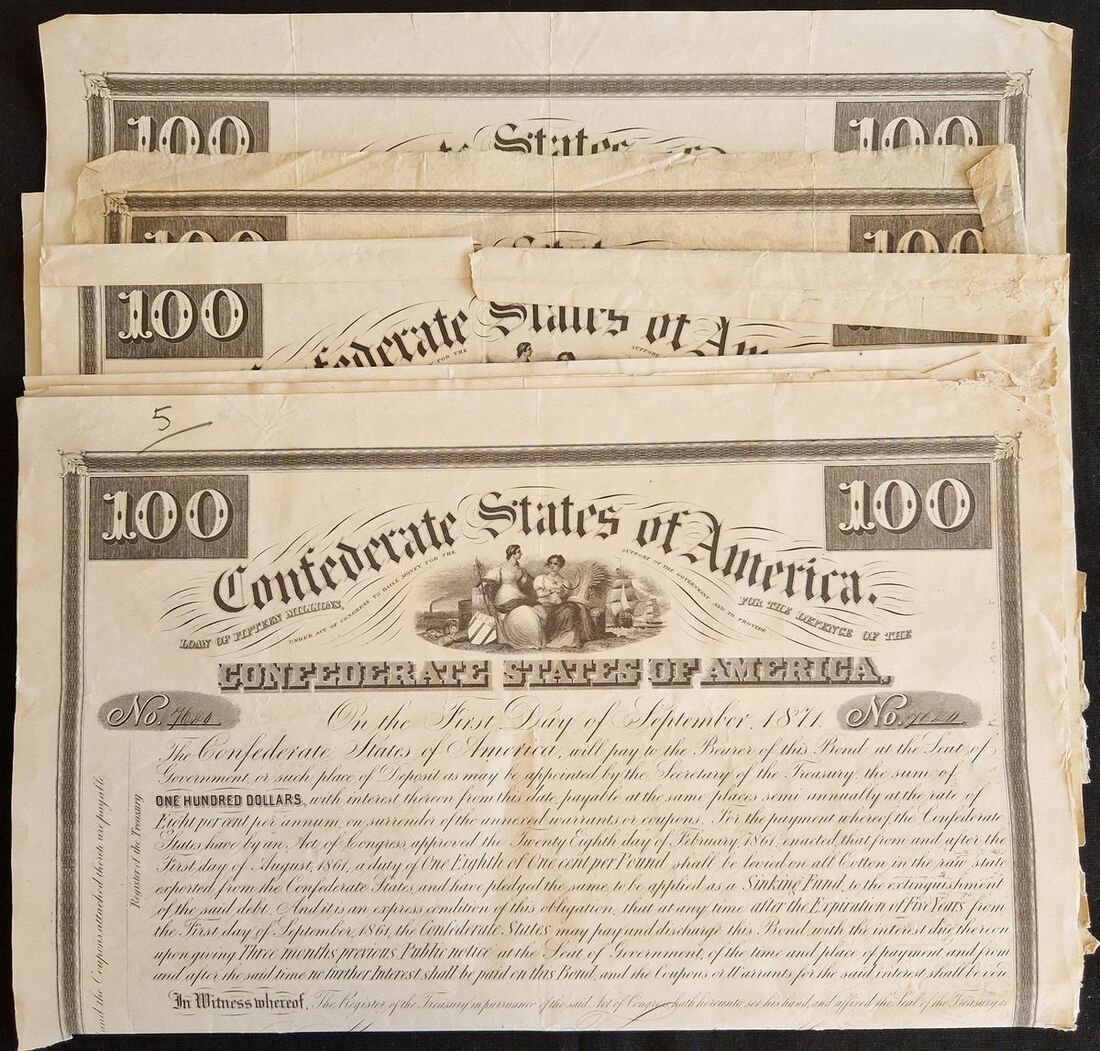 100
100
States
100
100
100
Confederate States of Am
FOR THE
SUPPORT
5
100
100
Confederate States of America.
LOAN OF FIFTEEN MILLIONS,
UNDER ACT OF CONGRESS TO RAISE MONEY FOR THE
SUPPORT OF THE GOVERNMENT AND TO PROVIDE
FOR THE DEFENCE OF THE
CONFEDERATE STATES OF AMERICA,
No.
On the First Day of September, 1871.
No.
The Confederate States of America, will pay to the Bearer of this Bond at the Seat of
Government, or such place of Deposit as may be appointed by the Secretary of the Treasury, the sum of
ONE HUNDRED DOLLARS, with interest thereon from this date, payable at the same places semi annually at the rate of
Eight per cent per annum, on surrender of the annexed warrants or coupons. For the payment whereof the Confederate
States have by an Act of Congress, approved the Twenty Eighth day of February, 1861, enacted, that from and after the
First day of August, 1861, a duty of One Eighth of One cent per Pound shall be levied on all Cotton in the raw state
exported from the Confederate States, and have pledged the same, to be applied as a Sinking Fund, to the extinguishment
of the said debt. And it is an express condition of this obligation, that at any time after the Expiration of Five Years from
the First day of September, 1861, the Confederate States may pay and discharge this Bond, with the interest due thereon
upon giving Three months previous Public notice at the Seat of Government, of the time and place of payment and from
and after the said time no further Interest shall be paid on this Bond, and the Coupons or Warrants for the said interest shall be
In Witness whereof, The Register of the Treasury in pursuance of the said Act of Congress, hath hereunto set his hand, and affixed the Seal of the Treasury
and the Coupons attached thereto are payable
Register of the Treasury